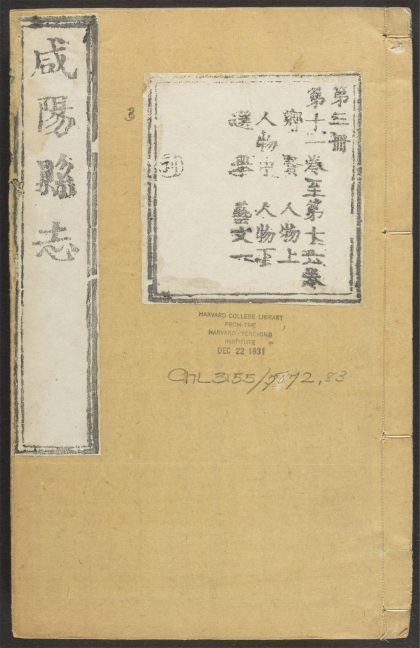 咸陽縣志
第三冊
第十一卷至第十五卷
鄉賢 人物上
人物中 人物下
選舉 藝文一
3
HARVARD COLLEGE LIBRARY
FROM THE
HARVARD-YENCHING
INSTITUTE
DEC 22 1931